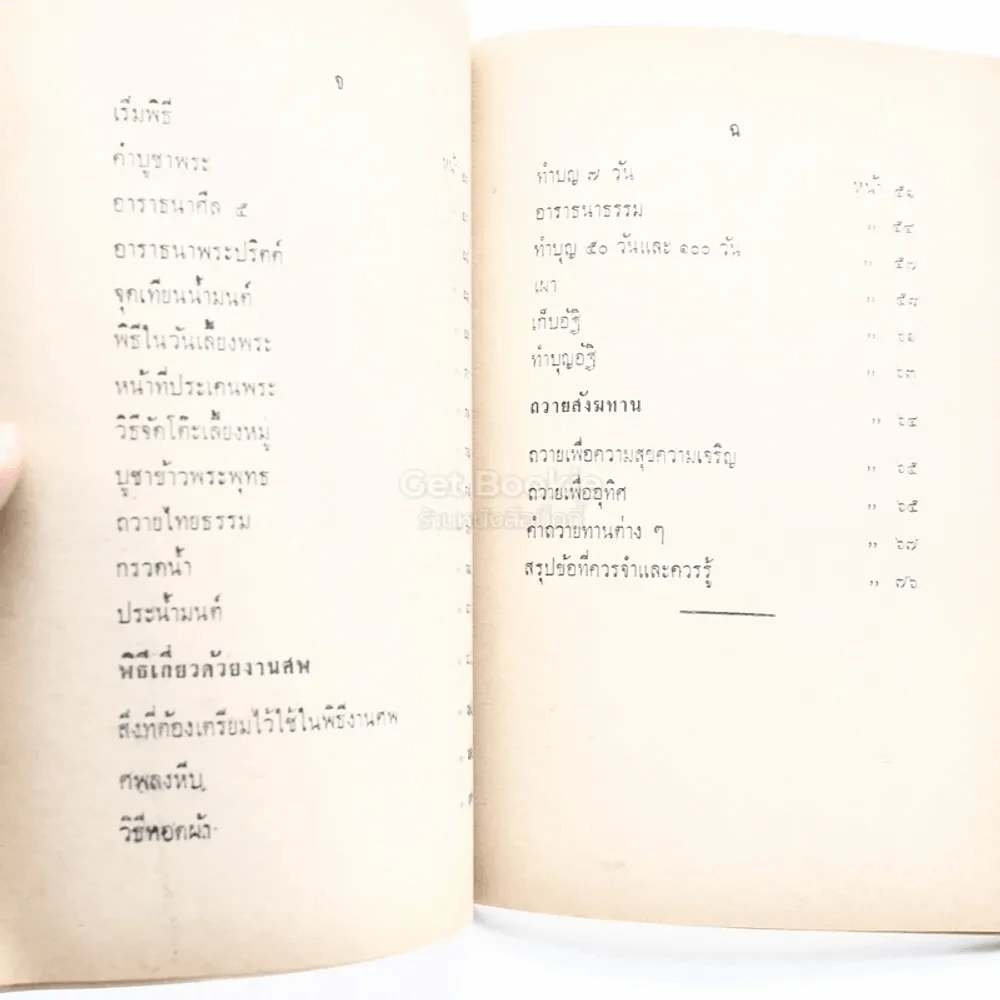 จ
หน้า
เริ่มพิธี
คำบูชาพระ
อาราธนาศีล ๕
อาราธนาพระปริตต์
จุดเทียนน้ำมนต์
พิธีในวันเลี้ยงพระ
หน้าที่ประเคนพระ
วิธีจัดโต๊ะเลี้ยงหมู่
บูชาข้าวพระพุทธ
ถวายไทยธรรม
กรวดน้ำ
ประน้ำมนต์
พิธีเกี่ยวด้วยงานศพ
สิ่งที่ต้องเตรียมไว้ใช้ในพิธีงานศพ
ศพลงหีบ
วิธีทอดผ้า
ฉ
ทำบุญ ๗ วัน หน้า
อาราธนาธรรม " ๕๔
ทำบุญ ๕๐ วันและ ๑๐๐ วัน " ๕๗
เผา " ๕๘
เก็บอัฐิ "
ทำบุญอัฐิ " ๖๓
ถวายสังฆทาน " ๖๔
ถวายเพื่อความสุขความเจริญ " ๖๕
ถวายเพื่ออุทิศ " ๖๕
คำถวายทานต่าง ๆ " ๖๗
สรุปข้อที่ควรจำและควรรู้ " ๗๖
Get Bookie
ร้านหนังสือเก็ตบุ๊คกี้